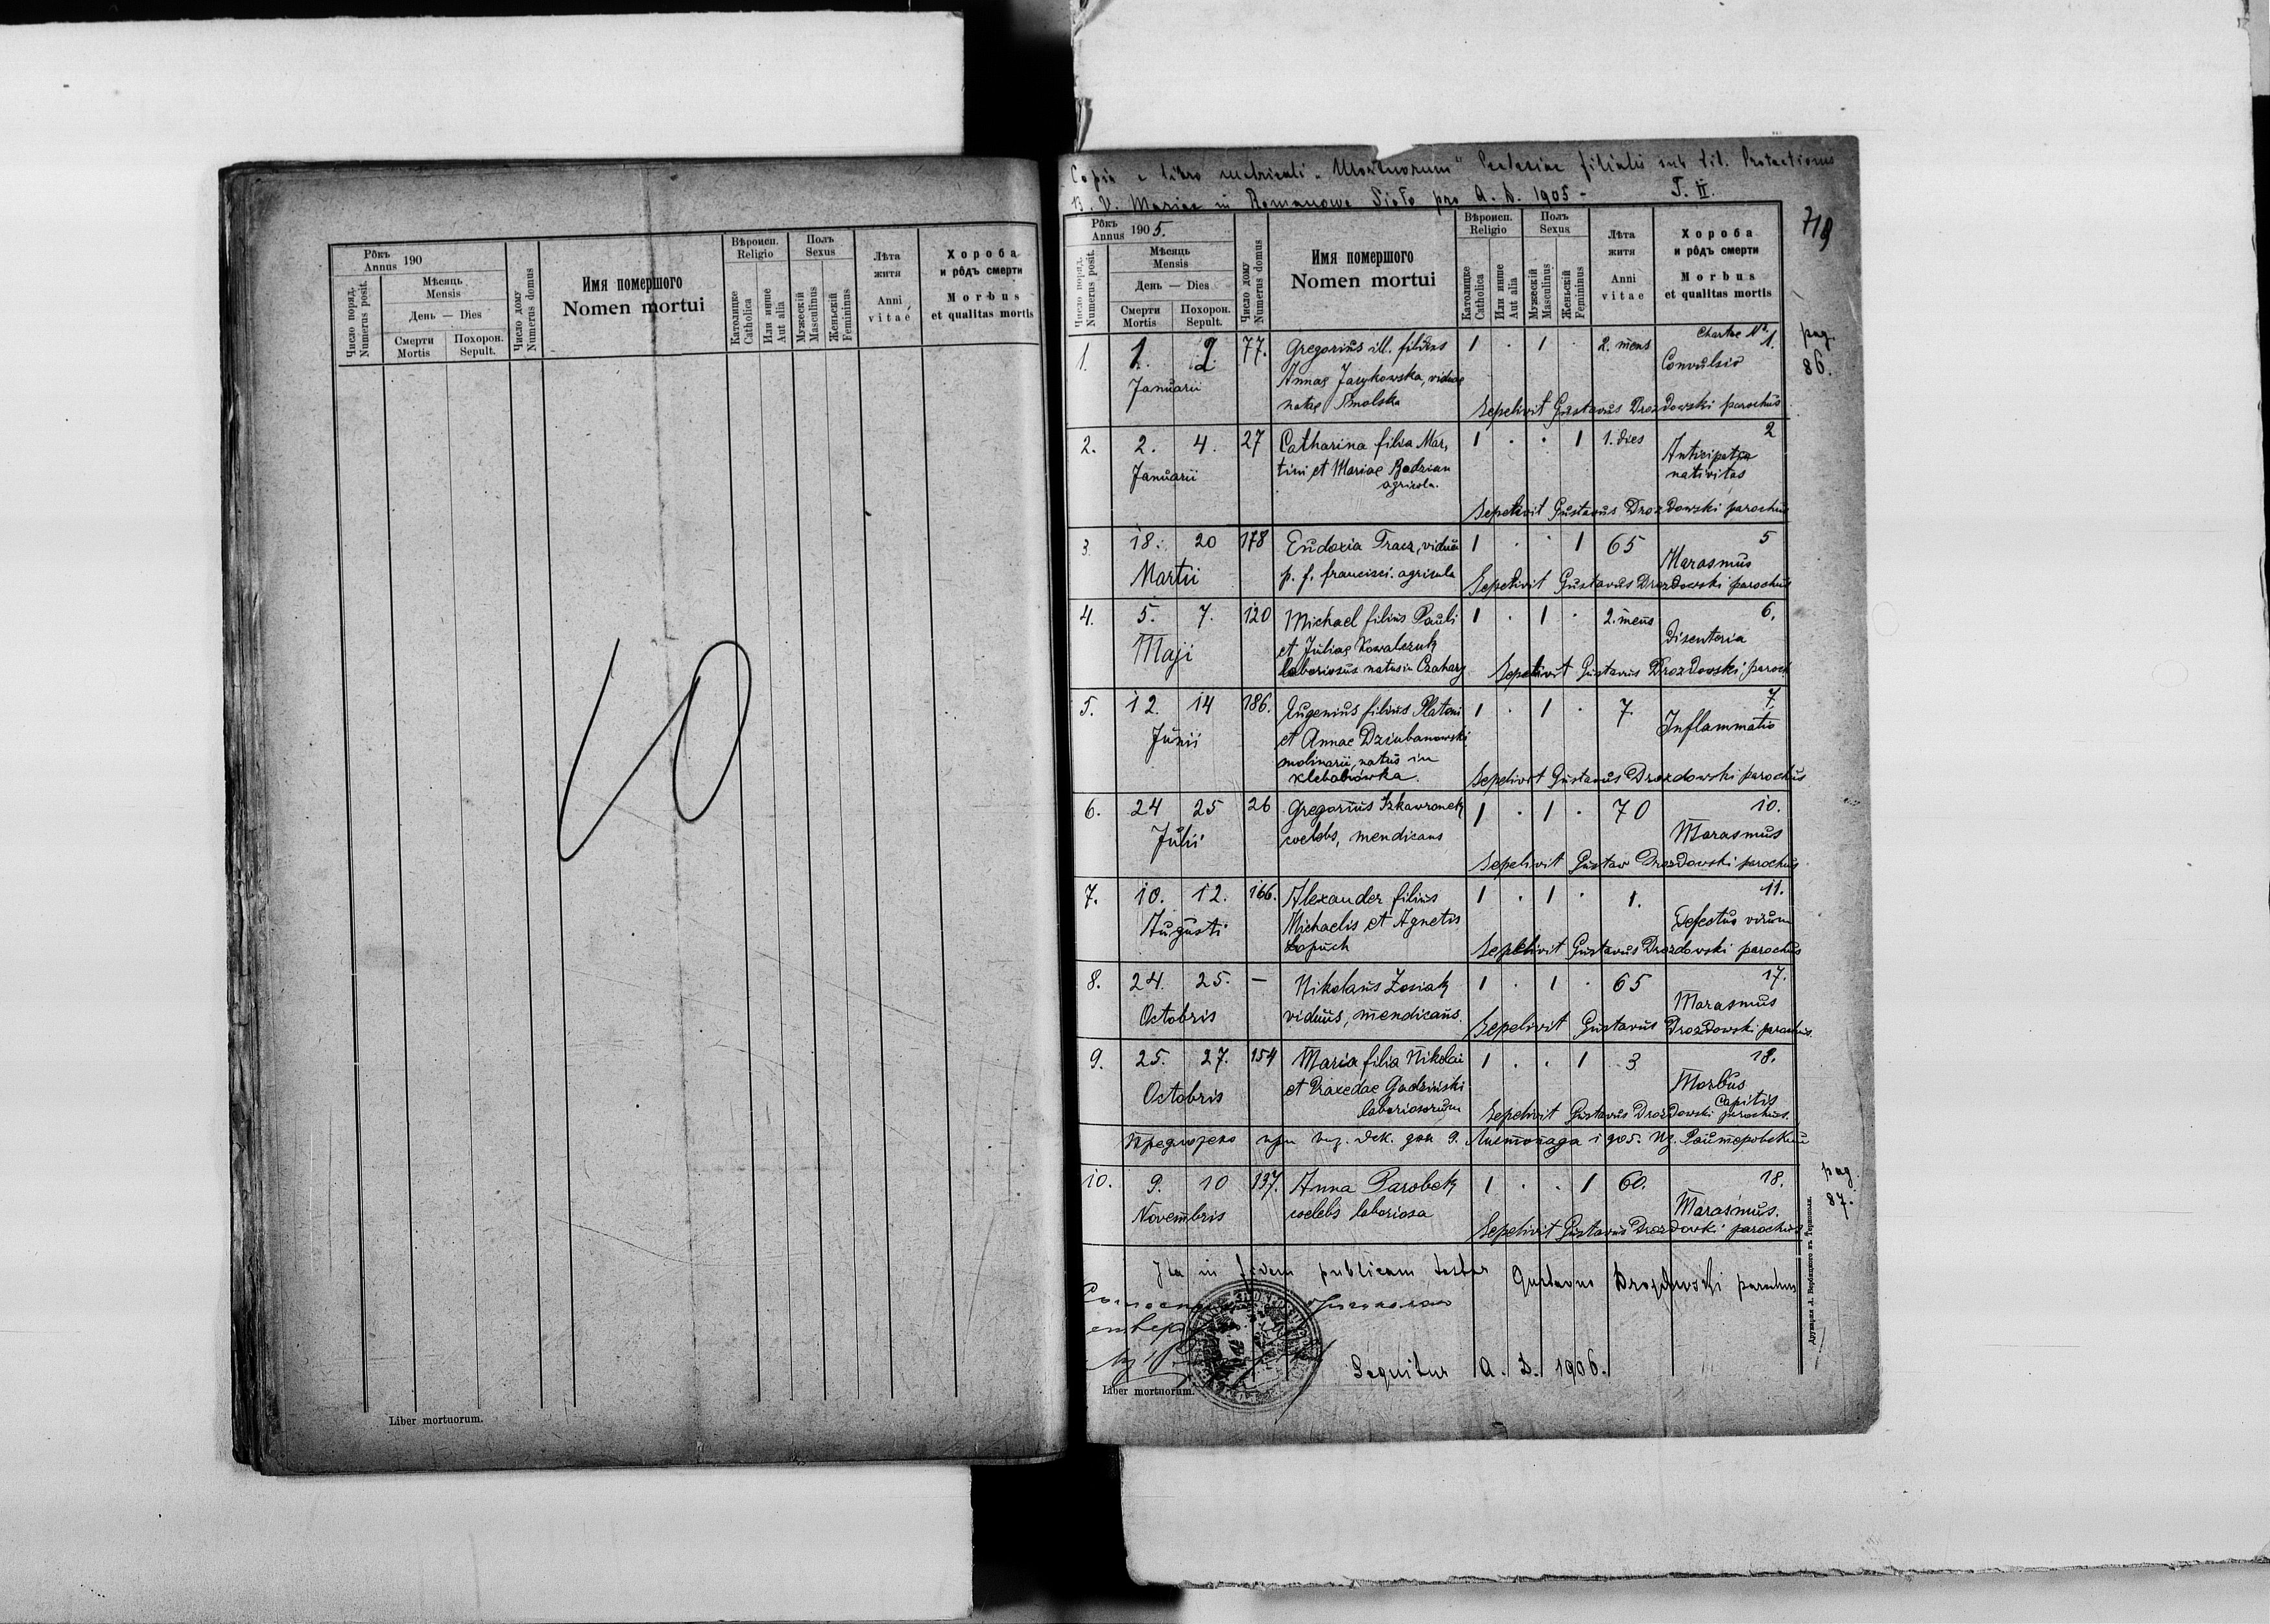 Рôкъ
Annus 190
Мѣсяць
Mensis
День — Dies
Смерти
Mortis
Похорон.
Sepult.
Число поряд.
Numerus posit.
Число дому
Numerus domus
Имя помершого
Nomen mortui
Вѣроисп.
Religio
Католицке
Catholica
Или инше
Aut alia
Полъ
Sexus
Мужескій
Masculinus
Женьскій
Femininus
Лѣта
житя
Anni
vitae
Хороба
и рôдъ смерти
Morbus
et qualitas mortis
Liber mortuorum.
Copia e libro metricali "Mortuorum" Ecclesiae filialis sub tit. Protectionis
B. V. Mariae in Romanowe Sioło pro A. D. 1905 - T. II.
719
Рôкъ
Annus 1905.
Мѣсяць
Mensis
День — Dies
Смерти
Mortis
Похорон.
Sepult.
Число поряд.
Numerus posit.
Число дому
Numerus domus
Имя помершого
Nomen mortui
Вѣроисп.
Religio
Католицке
Catholica
Или инше
Aut alia
Полъ
Sexus
Мужескій
Masculinus
Женьскій
Femininus
Лѣта
житя
Anni
vitae
Хороба
и рôдъ смерти
Morbus
et qualitas mortis
Chartae Nr. 1.
pag.
86.
1. 1. 2. 77. Gregorius ill. filius 1 . 1 . 2. mens Convulsio
Januarii Annae Jasykowska, viduae
natae Smolska Sepelivit Gustavus Drozdowski parochus
2
2. 2. 4. 27 Catharina filia Mar, 1 . . 1 1. dies Anticipata
Januarii tini et Mariae Badzian nativitas
agricola.
Sepelivit Gustavus Drozdowski parochus
3. 18. 20 178 Eudoxia Tracz, vidua 1 . . 1 65 5
Marasmus
Martii p. f. francisci. agricola Sepelivit Gustavus Drozdowski parochus
4. 5. 7. 120 Michael filius Pauli 1 . 1 . 2. mens 6.
Maji et Juliae Kowalczuk Disenteria
laboriosus natus in Czahary Sepelivit Gustavus Drozdowski paroch
5. 12. 14 186. Eugenius filius Platoni 1 . 1 . 7. 7.
Junii et Annae Dziubanowski Inflammatio
molinarii, natus in
Klebanówka. Sepelivit Gustavus Drozdowski parochus
6. 24 25 26 Gregorius Szkawronek 1 . 1 . 70 10.
Julii coelebs, mendicans Marasmus
Sepelivit Gustaw Drozdowski parochus
7. 10. 12. 166. Alexander filius 1 . 1 . 1. 11.
Augusti Michaelis et Agnetis Defectus virium
Łopuch Sepelivit Gustavus Drozdowski parochus
8. 24. 25. — Nikolaus Zosiak 1 . 1 . 65 17.
Octobris viduus, mendicans. Marasmus
Sepelivit Gustavus Drozdowski parochus.
9. 25. 27. 154 Maria filia Nikolai 1 . . 1 3 18.
Octobris et Praxedae Gadziński Morbus
laboriosorum Capitis
Sepelivit Gustavus Drozdowski parochus.
Предложено при виз. дек. дня 9. Листопада 1905.
10. 9. 10 137. Anna Parobek 1 . . 1 60. 18.
pag
87.
Novembris coelebs laboriosa Marasmus.
Sepelivit Gustavus Drozdowski parochus
Ita in fidem publicam testor Gustavus Drozdowski parochus
Sequitur A. D. 1906.
Liber mortuorum.
Друкарня Л. Вербицкого въ Тернополи.